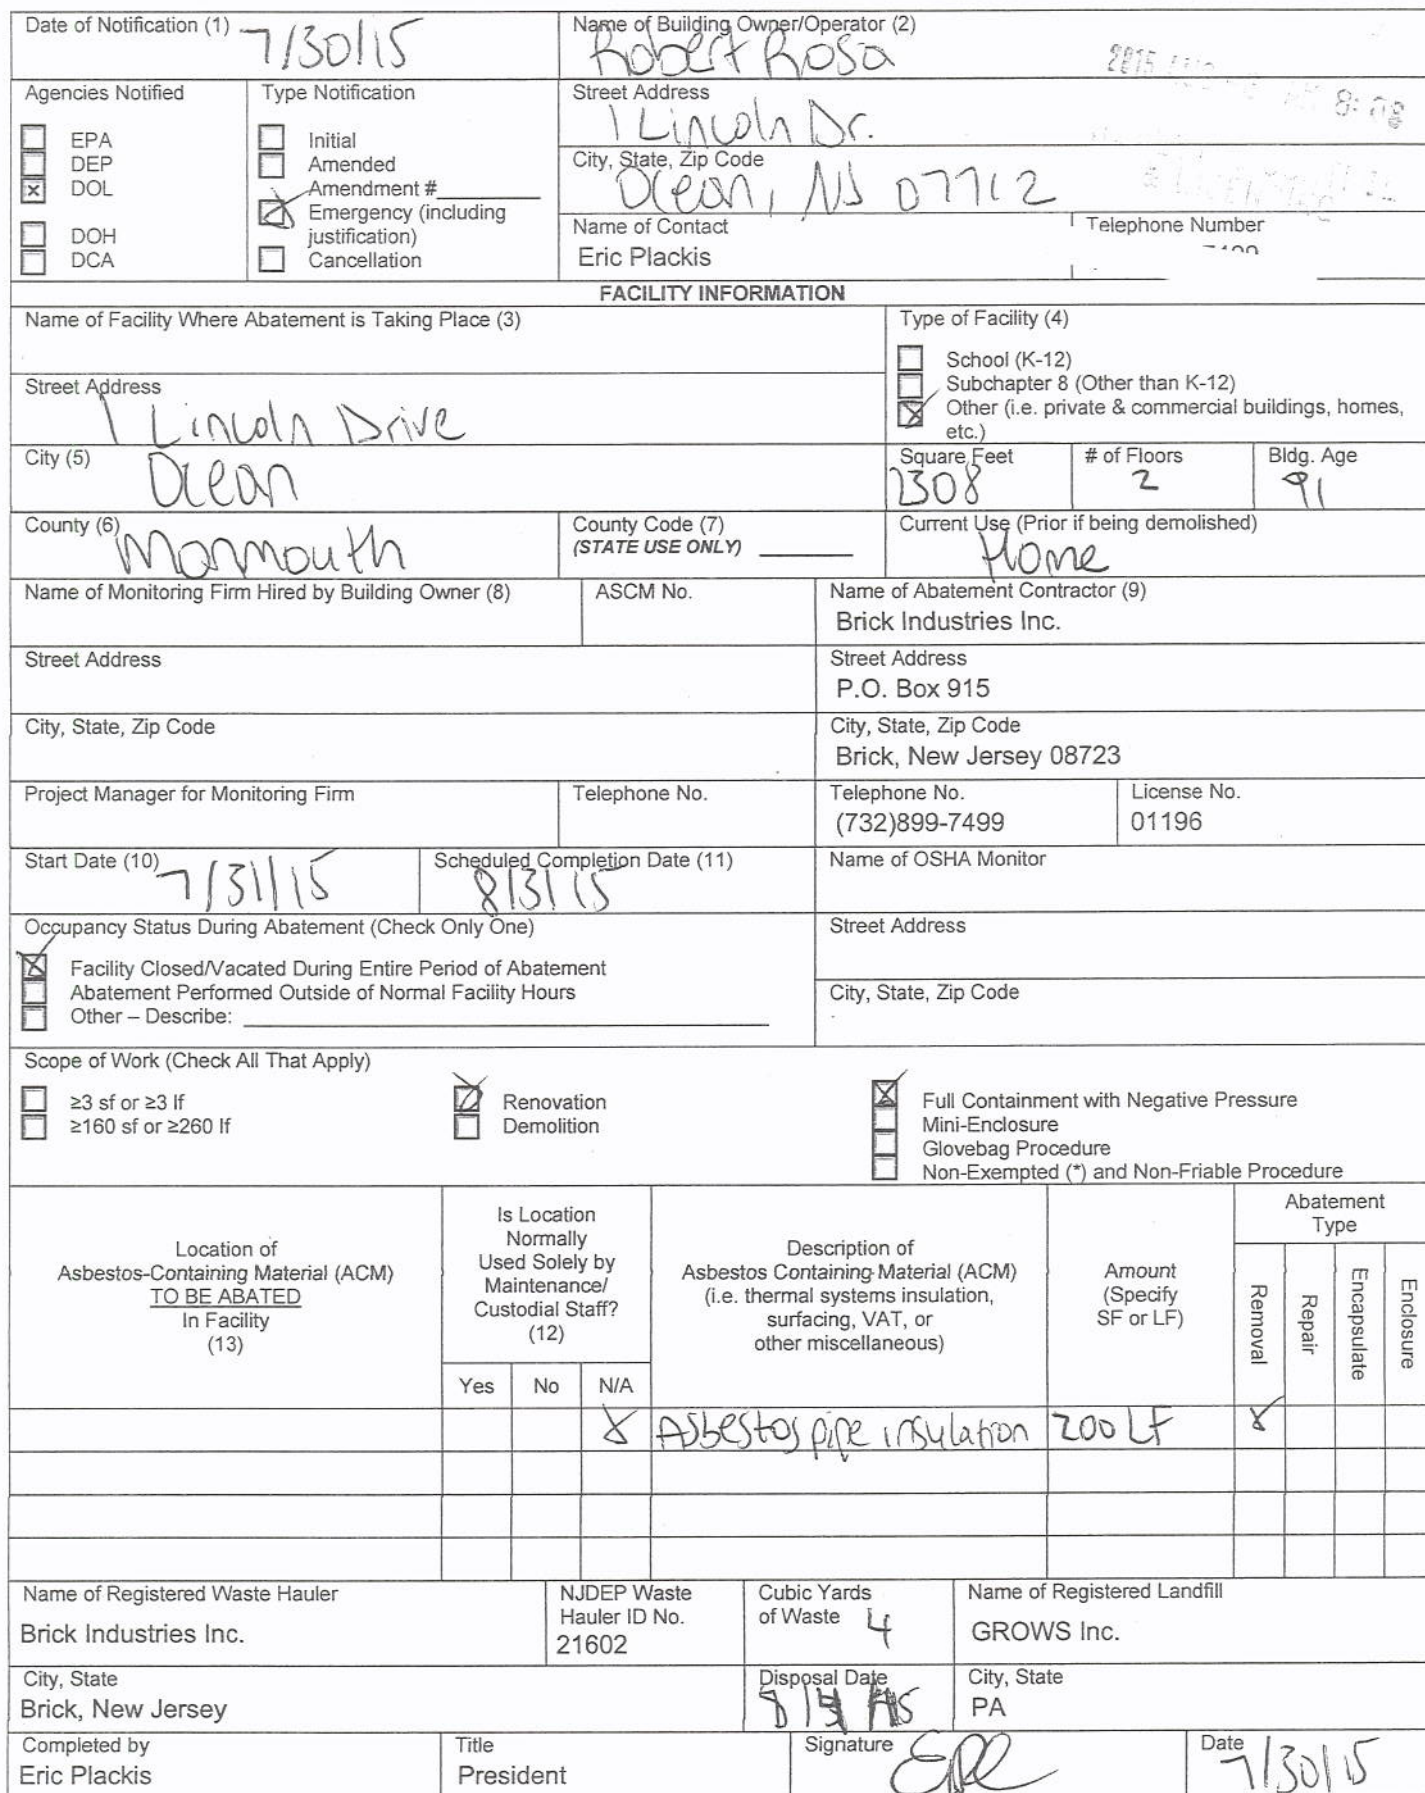 Date of Notification (1) 7/30/15
Name of Building Owner/Operator (2)
Robert Rosa
Agencies Notified
EPA
DEP
DOL
DOH
DCA
Type Notification
Initial
Amended
Amendment #
Emergency (including
justification)
Cancellation
Street Address
1 Lincoln Dr.
8:08
City, State, Zip Code
Ocean, NJ 07712
Name of Contact
Eric Plackis
Telephone Number
FACILITY INFORMATION
Name of Facility Where Abatement is Taking Place (3)
Type of Facility (4)
School (K-12)
Subchapter 8 (Other than K-12)
Other (i.e. private & commercial buildings, homes,
etc.)
Street Address
1 Lincoln Drive
City (5) Ocean
Square Feet
2308
# of Floors
2
Bldg. Age
91
County (6) Monmouth
County Code (7)
(STATE USE ONLY)
Current Use (Prior if being demolished)
Home
Name of Monitoring Firm Hired by Building Owner (8)
ASCM No.
Name of Abatement Contractor (9)
Brick Industries Inc.
Street Address
Street Address
P.O. Box 915
City, State, Zip Code
City, State, Zip Code
Brick, New Jersey 08723
Project Manager for Monitoring Firm
Telephone No.
Telephone No.
(732)899-7499
License No.
01196
Start Date (10) 7/31/15
Scheduled Completion Date (11)
8/3/15
Name of OSHA Monitor
Occupancy Status During Abatement (Check Only One)
Facility Closed/Vacated During Entire Period of Abatement
Abatement Performed Outside of Normal Facility Hours
Other – Describe:
Street Address
City, State, Zip Code
Scope of Work (Check All That Apply)
≥3 sf or ≥3 lf
≥160 sf or ≥260 lf
Renovation
Demolition
Full Containment with Negative Pressure
Mini-Enclosure
Glovebag Procedure
Non-Exempted (*) and Non-Friable Procedure
Location of
Asbestos-Containing Material (ACM)
TO BE ABATED
In Facility
(13)
Is Location
Normally
Used Solely by
Maintenance/
Custodial Staff?
(12)
Yes
No
N/A
Description of
Asbestos Containing Material (ACM)
(i.e. thermal systems insulation,
surfacing, VAT, or
other miscellaneous)
Amount
(Specify
SF or LF)
Abatement
Type
Removal
Repair
Encapsulate
Enclosure
X Asbestos pipe insulation 200 LF X
Name of Registered Waste Hauler
Brick Industries Inc.
NJDEP Waste
Hauler ID No.
21602
Cubic Yards
of Waste 4
Name of Registered Landfill
GROWS Inc.
City, State
Brick, New Jersey
Disposal Date
City, State
PA
Completed by
Eric Plackis
Title
President
Signature
Date 7/30/15